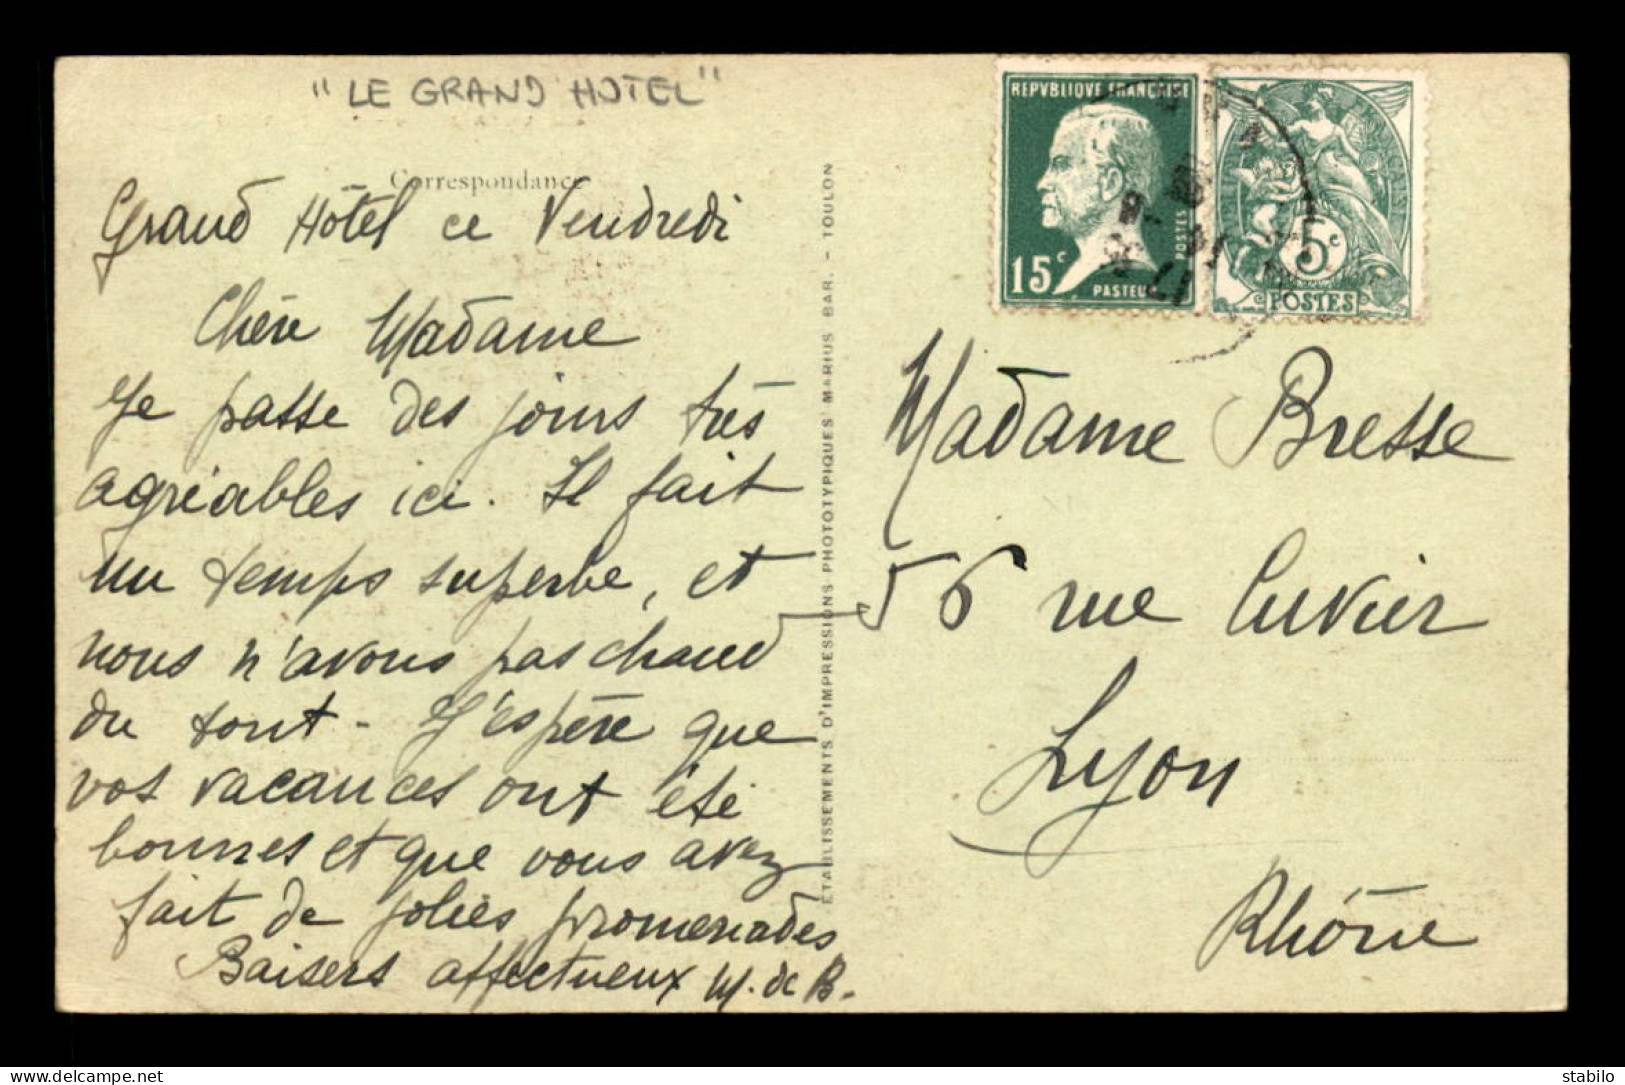 "LE GRAND HOTEL"
Correspondance
Grand Hôtel ce Vendredi
Chère Madame
Je passe des jours très
agréables ici. Il fait
un temps superbe, et
nous n'avons pas chaud
du tout - J'espère que
vos vacances ont été
bonnes et que vous avez
fait de jolies promenades
Baisers affectueux M. de B.
ÉTABLISSEMENTS D'IMPRESSIONS PHOTOTYPIQUES MARIUS BAR. - TOULON
REPVBLIQVE FRANÇAISE
15c
POSTES
PASTEUR
5c
POSTES
Madame Bresse
56 rue Cuvier
Lyon
Rhône
stabilo